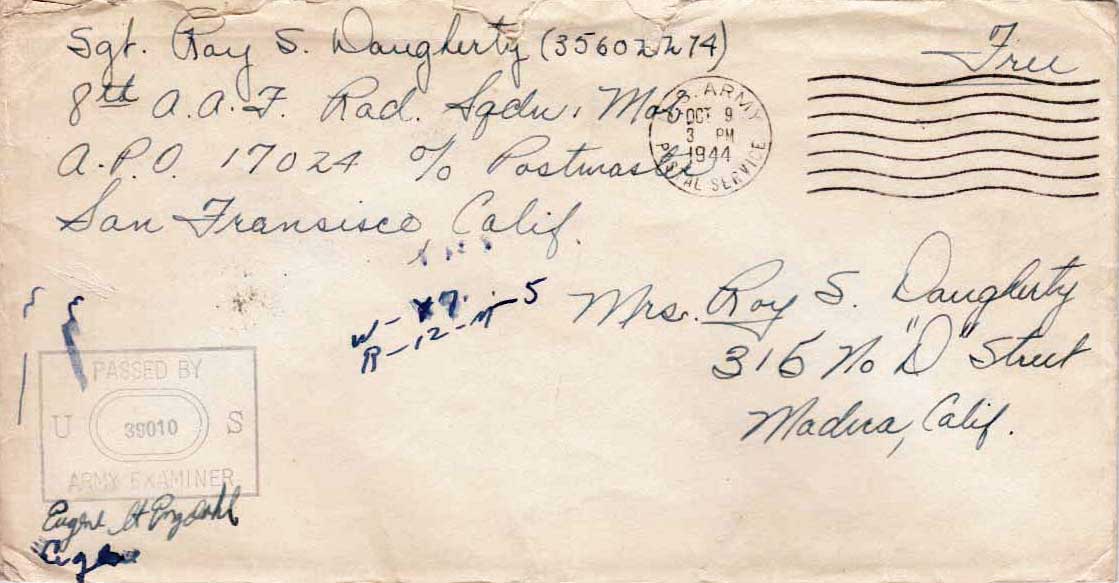 Sgt. Roy S. Daugherty (35602274)
8th A.A.F. Rad. Sqdn. Mob.
A.P.O. 17024 c/o Postmaster
San Fransisco Calif.
Free
U.S. ARMY
OCT 9
3 PM
1944
POSTAL SERVICE
W-
R-12-
5
Mrs. Roy S. Daugherty
315 No "D" Street
Madera, Calif.
PASSED BY
U 39010 S
ARMY EXAMINER
Eugene